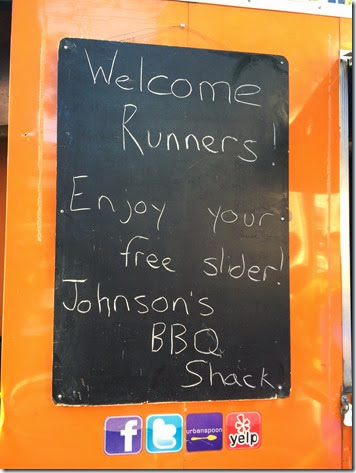 Welcome
Runners!
Enjoy your
free slider!
Johnson's
BBQ
Shack
f
t
urbanspoon
yelp